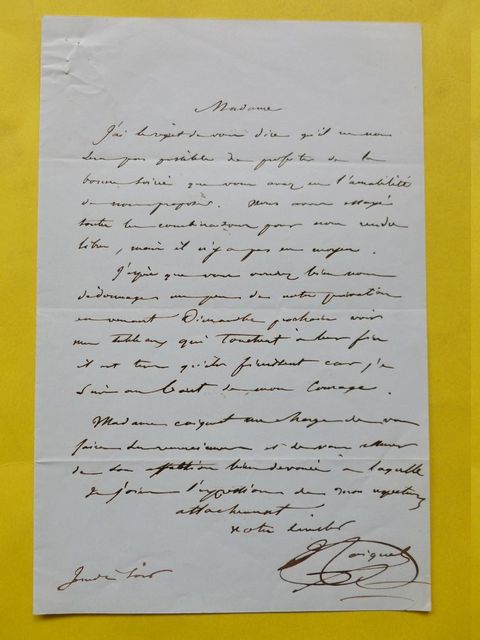 Madame
J'ai le regret de vous dire qu'il ne nous
sera pas possible de profiter de la
bonne soirée que vous avez eu l'amabilité
de nous proposer. Nous avons essayé
toutes les combinaisons pour nous rendre
libre, mais il n'y a pas eu moyen.
J'espère que vous voudrez bien nous
dédommager un peu de notre privation
en venant Dimanche prochain voir
mes tableaux qui touchent à leur fin
il est tems qu'ils finissent car je
suis au bout de mon courage.
Madame Coignet me charge de vous
faire ses remerciemens et de vous assurer
de son affection bien dévouée à laquelle
je joins l'expression de mon respectueux
attachement
votre serviteur
J. Coignet
Jeudi soir